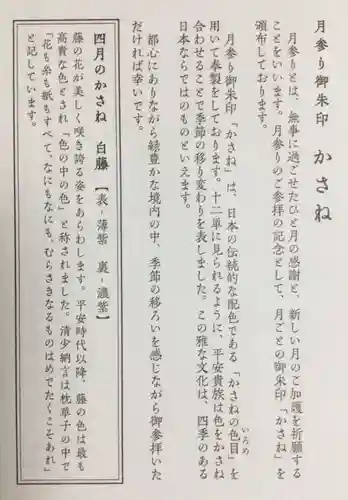 月参り御朱印 かさね
月参りとは、無事に過ごせたひと月の感謝と、新しい月のご加護を祈願する
ことをいいます。月参りのご参拝の記念として、月ごとの御朱印「かさね」を
頒布しております。
月参り御朱印「かさね」は、日本の伝統的な配色である「かさねの色目」を
いろめ
用いて奉製をしております。十二単に見られるように、平安貴族は色をかさね
合わせることで季節の移り変わりを表しました。この雅な文化は、四季のある
日本ならではのものといえます。
都心にありながら緑豊かな境内の中、季節の移ろいを感じながら御参拝いた
だければ幸いです。
四月のかさね 白藤【表-薄紫 裏-濃紫】
藤の花が美しく咲き誇る姿をあらわします。平安時代以降、藤の色は最も
高貴な色とされ「色の中の色」と称されました。清少納言は枕草子の中で
「花も糸も紙もすべて、なにもなにも、むらさきなるものはめでたくこそあれ」
と記しています。